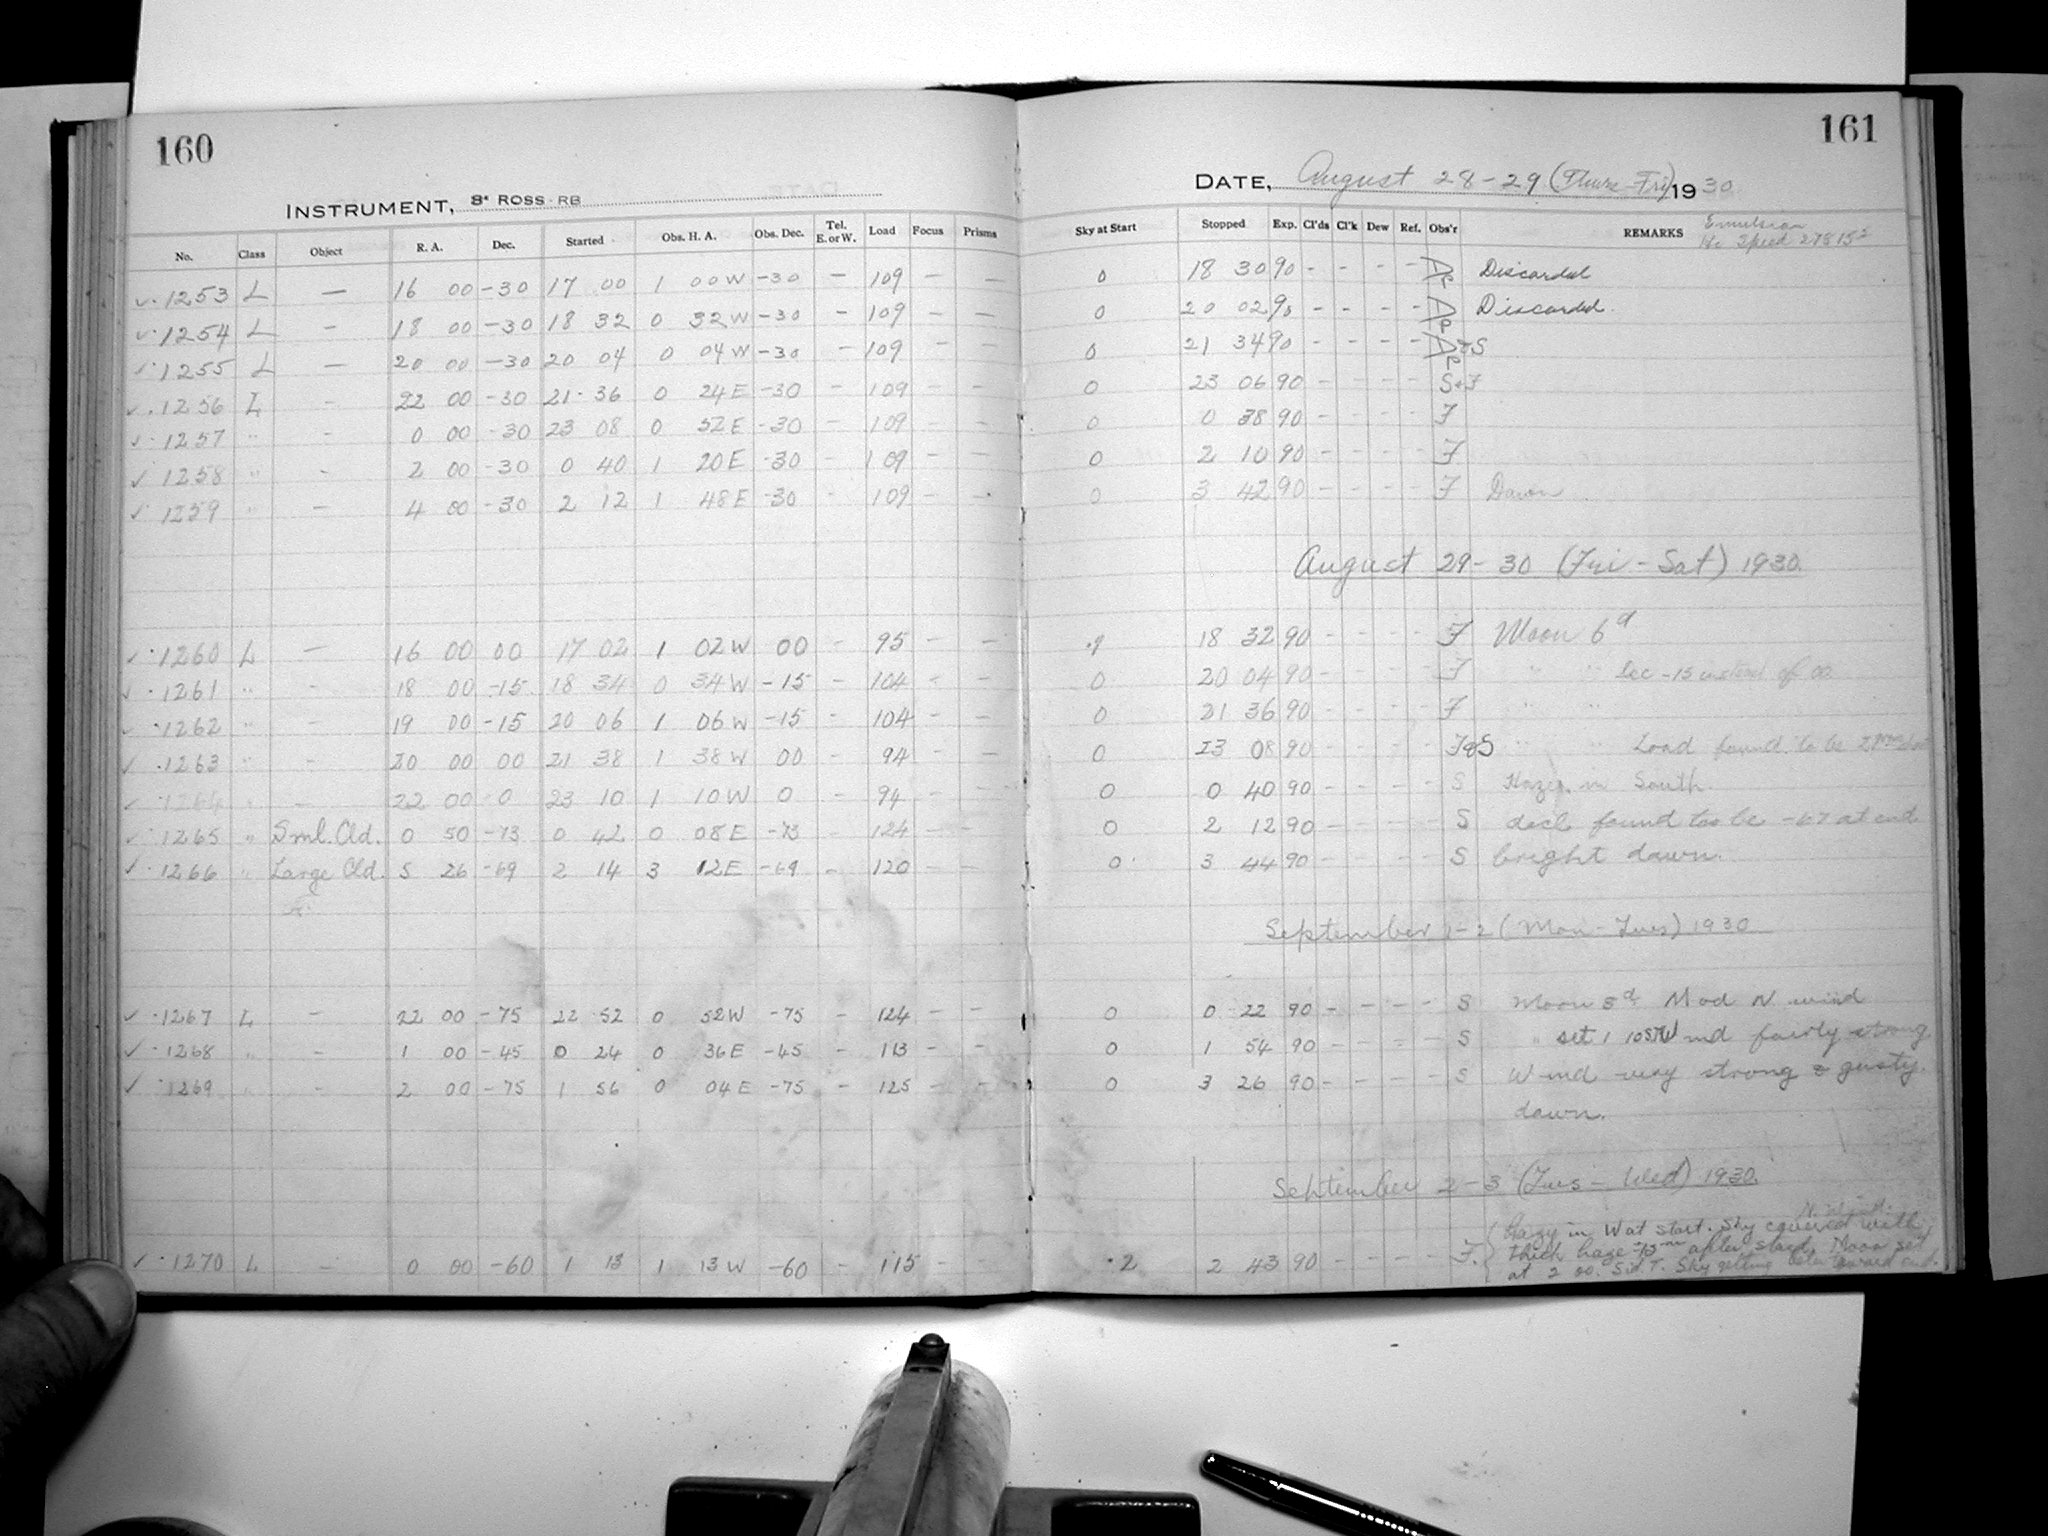 160
INSTRUMENT, 8" ROSS RB
No. Class Object R. A. Dec. Started Obs. H. A. Obs. Dec. Tel. E. or W. Load Focus Prisms
✓ 1253 L — 16 00 -30 17 00 1 00 W -30 - 109 - -
✓ 1254 L - 18 00 -30 18 32 0 32 W -30 - 109 - -
✓ 1255 L — 20 00 -30 20 04 0 04 W -30 - 109 - -
✓ 1256 L - 22 00 -30 21 36 0 24 E -30 - 109 - -
✓ 1257 " - 0 00 -30 23 08 0 52 E -30 - 109 - -
✓ 1258 " - 2 00 -30 0 40 1 20 E -30 - 109 - -
✓ 1259 " - 4 00 -30 2 12 1 48 E -30 - 109 - -
✓ 1260 L — 16 00 00 17 02 1 02 W 00 - 95 - -
✓ 1261 " - 18 00 -15 18 34 0 34 W -15 - 104 - -
✓ 1262 " - 19 00 -15 20 06 1 06 W -15 - 104 - -
✓ 1263 " - 20 00 00 21 38 1 38 W 00 - 94 - -
✓ 1264 " - 22 00 0 23 10 1 10 W 0 - 94 - -
✓ 1265 " Sml. Cld. 0 50 -73 0 42 0 08 E -73 - 124 - -
✓ 1266 " Large Cld. 5 26 -69 2 14 3 12 E -69 - 120 - -
✓ 1267 L - 22 00 -75 22 52 0 52 W -75 - 124 - -
✓ 1268 " - 1 00 -45 0 24 0 36 E -45 - 113 - -
✓ 1269 " - 2 00 -75 1 56 0 04 E -75 - 125 - -
✓ 1270 L - 0 00 -60 1 13 1 13 W -60 - 115 - -
161
DATE, August 28-29 (Thurs-Fri) 1930
Sky at Start Stopped Exp. Cl'ds Cl'k Dew Ref. Obs'r REMARKS Emulsion
Speed 27815
0 18 30 90 - - - - Discarded
0 20 02 90 - - - - Discarded.
0 21 34 90 - - - - & S
0 23 06 90 - - - - S & F
0 0 38 90 - - - - F
0 2 10 90 - - - - F
0 3 42 90 - - - - F Dawn
August 29-30 (Fri-Sat) 1930.
18 32 90 - - - - F Moon 6d
0 20 04 90 - - - - F " " Dec -15 instead of 00
0 21 36 90 - - - - F " "
0 23 08 90 - - - - F & S " " Load found to be
0 0 40 90 - - - - S Hazy in South.
0 2 12 90 - - - - S decl found to be -67 at end
0 3 44 90 - - - - S bright dawn.
September 1-2 (Mon-Tues) 1930
0 0 22 90 - - - - S Moon 8d. Mod N. wind
0 1 54 90 - - - - S " set 1 10 ST Wind fairly strong
0 3 26 90 - - - - S Wind very strong & gusty.
dawn.
September 2-3 (Tues-Wed) 1930.
Hazy in W at start. Sky covered with
.2 2 43 90 - - - - F. thick haze after start. Moon set
at 2 00. Sid. T. Sky getting toward end.